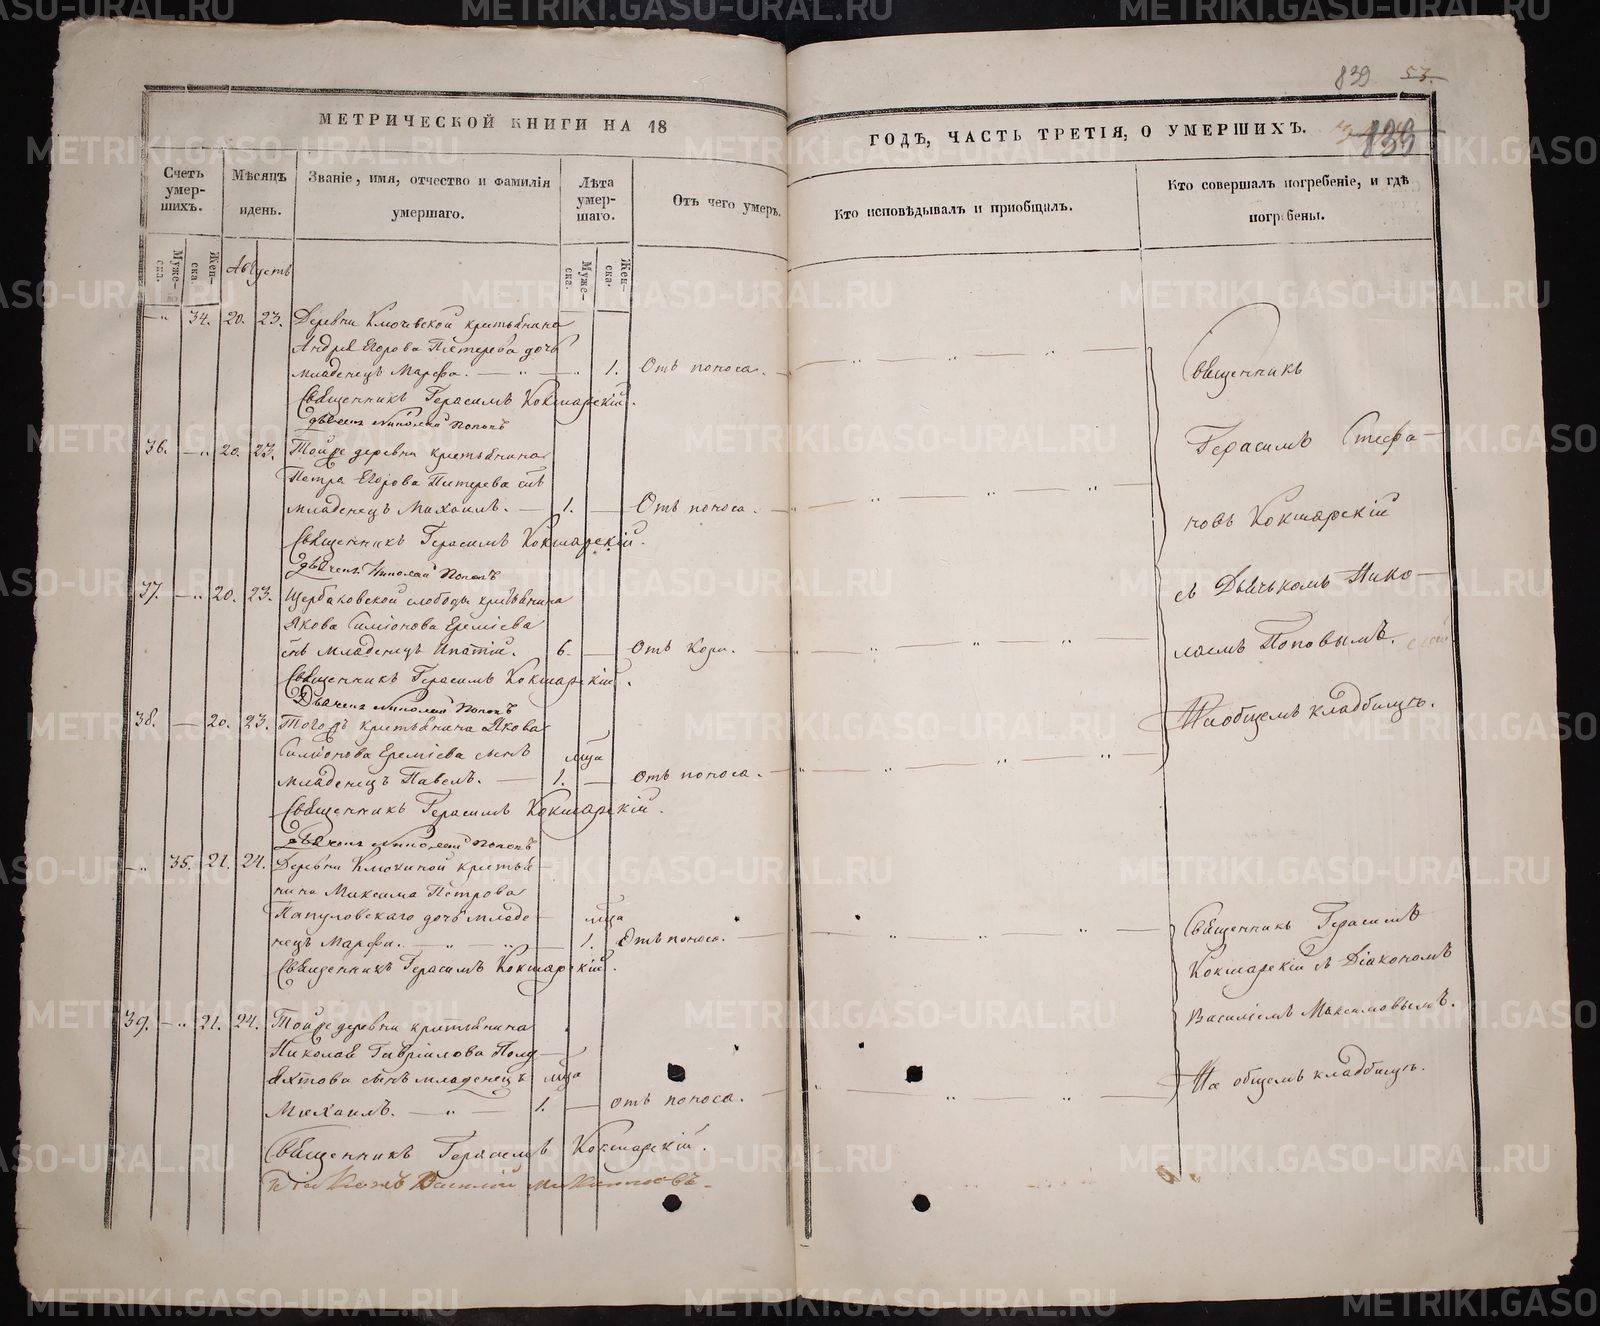 839 53.
839
МЕТРИЧЕСКОЙ КНИГИ НА 18
ГОДЪ, ЧАСТЬ ТРЕТІЯ, О УМЕРШИХЪ.
Счетъ умер-шихъ.
Мѣсяцъ идень.
Званіе, имя, отчество и фамилія умершаго.
Лѣта умер-шаго.
Отъ чего умеръ.
Кто исповѣдывалъ и пріобщалъ.
Кто совершалъ погребеніе, и гдѣ погребены.
Муже-ска.
Жен-ска.
Августъ
Муже-ска.
Жен-ска.
34. 20. 23. Деревни Ключевской крестьянина
Андрея Егорова Питерева дочь
младенецъ Марфа. 1. Отъ поноса.
Священникъ Герасимъ Кокшарскій.
Дьячекъ Николай Поповъ
36. 20. 23. Тойже деревни крестьянина
Петра Егорова Питерева сынъ
младенецъ Михаилъ. 1. Отъ поноса.
Священникъ Герасимъ Кокшарскій.
Дьячекъ Николай Поповъ
37. 20. 23. Щербаковской слободы крестьянина
Якова Симіонова Ереміева
сынъ младенецъ Ипатій. 6. Отъ кори.
Священникъ Герасимъ Кокшарскій.
Дьячекъ Николай Поповъ
38. 20. 23. Тогожъ крестьянина Якова
Симіонова Ереміева сынъ мца
младенецъ Павелъ. 1. Отъ поноса.
Священникъ Герасимъ Кокшарскій.
Дьячекъ Николай Поповъ
35. 21. 24. Деревни Клюкиной крестья
нина Максима Петрова
Папуловскаго дочь младе- мца
нецъ Марфа. 1. Отъ поноса.
Священникъ Герасимъ Кокшарскій.
39. 21. 24. Тойже деревни крестьянина
Николая Гавріилова Полу-
яхтова сынъ младенецъ мца
Михаилъ. 1. отъ поноса.
Священникъ Герасимъ Кокшарскій.
Діаконъ Василій Максимовъ.
Священникъ
Герасимъ Стефа-
новъ Кокшарскій
съ Дьячькомъ Нико-
лаемъ Поповымъ.
На общемъ кладбищѣ.
Священникъ Герасимъ
Кокшарскій съ Діакономъ
Василіемъ Максимовымъ.
На общемъ кладбищѣ.
METRIKI.GASO-URAL.RU